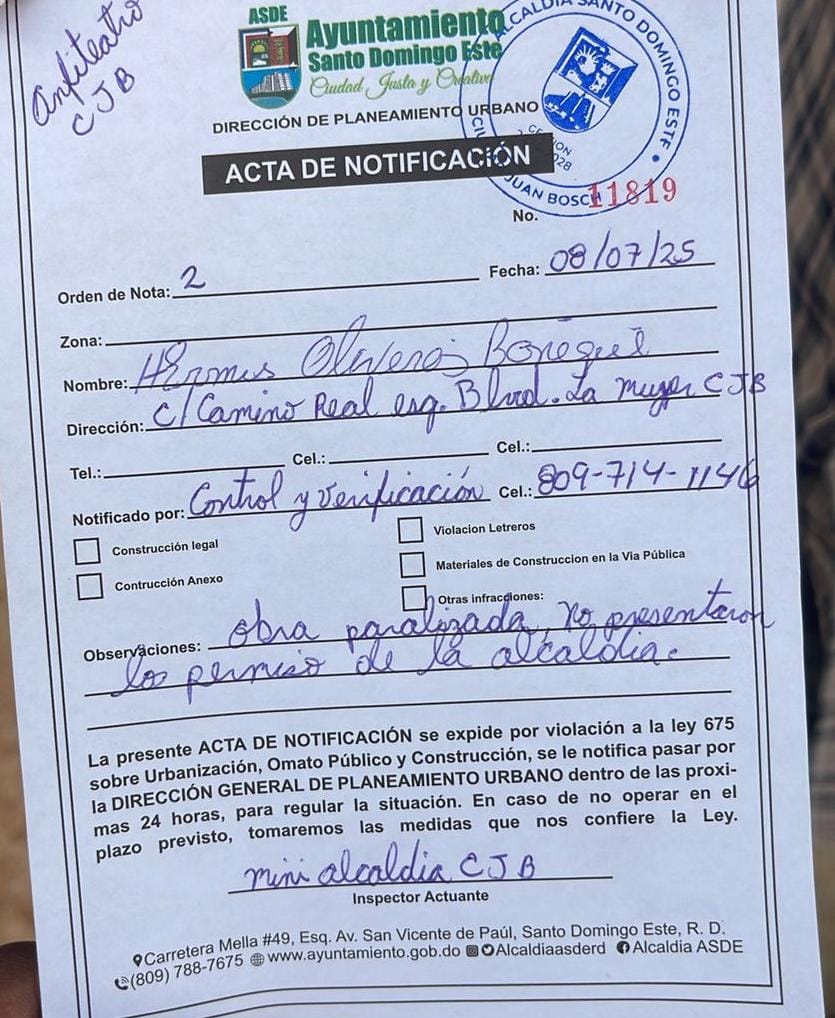 Anfiteatro
CJB
ASDE
Ayuntamiento
Santo Domingo Este
Ciudad Justa y Creativa
DIRECCIÓN DE PLANEAMIENTO URBANO
ALCALDIA SANTO DOMINGO ESTE
JUAN BOSCH
ACTA DE NOTIFICACIÓN
No. 11819
Orden de Nota: 2 Fecha: 08/07/25
Zona:
Nombre: Olivero
Dirección: C/Camino Real esq. Blvd. La mujer CJB
Tel.: Cel.: Cel.:
Notificado por: Control y verificación Cel.: 809-714-1146
Construcción legal Violacion Letreros
Contrucción Anexo Materiales de Construccion en la Via Pública
Otras infracciones:
Observaciones: obra paralizada, no presentaron
los permiso de la alcaldia.
La presente ACTA DE NOTIFICACIÓN se expide por violación a la ley 675
sobre Urbanización, Omato Público y Construcción, se le notifica pasar por
la DIRECCIÓN GENERAL DE PLANEAMIENTO URBANO dentro de las proxi-
mas 24 horas, para regular la situación. En caso de no operar en el
plazo previsto, tomaremos las medidas que nos confiere la Ley.
mini alcaldia CJB
Inspector Actuante
Carretera Mella #49, Esq. Av. San Vicente de Paúl, Santo Domingo Este, R. D.
(809) 788-7675 www.ayuntamiento.gob.do Alcaldiaasderd Alcaldia ASDE